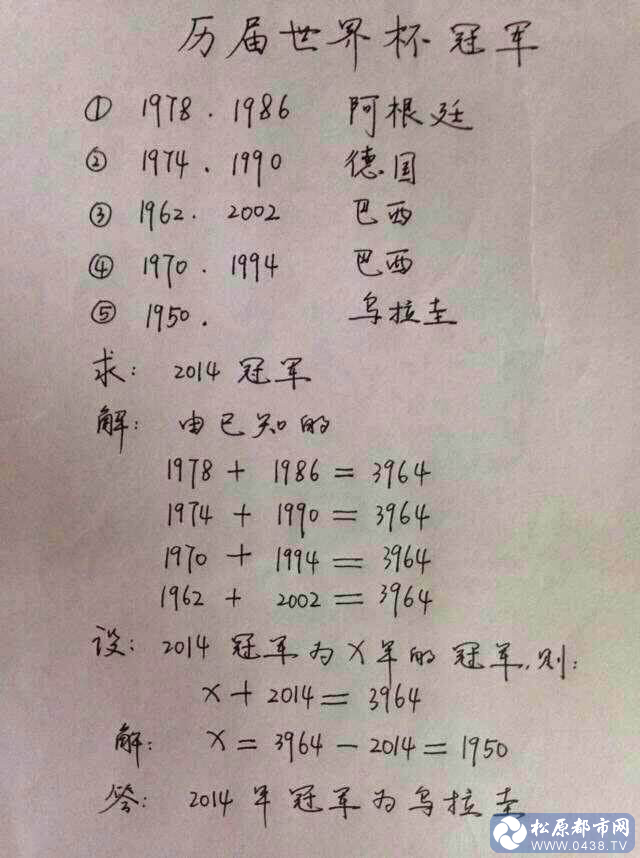 历届世界杯冠军
① 1978. 1986 阿根廷
② 1974. 1990 德国
③ 1962. 2002 巴西
④ 1970. 1994 巴西
⑤ 1950. 乌拉圭
求: 2014 冠军
解: 由已知的
1978 + 1986 = 3964
1974 + 1990 = 3964
1970 + 1994 = 3964
1962 + 2002 = 3964
设: 2014 冠军为X年的冠军,则:
X + 2014 = 3964
解: X = 3964 - 2014 = 1950
答: 2014年冠军为乌拉圭
松原都市网
www.0438.TV